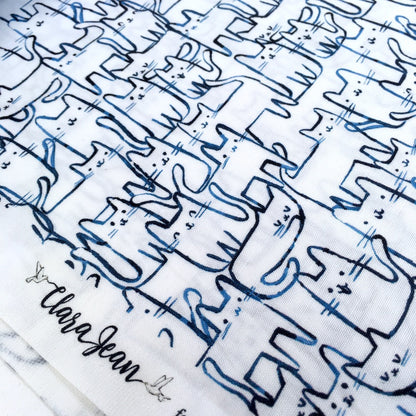 Clara Jean